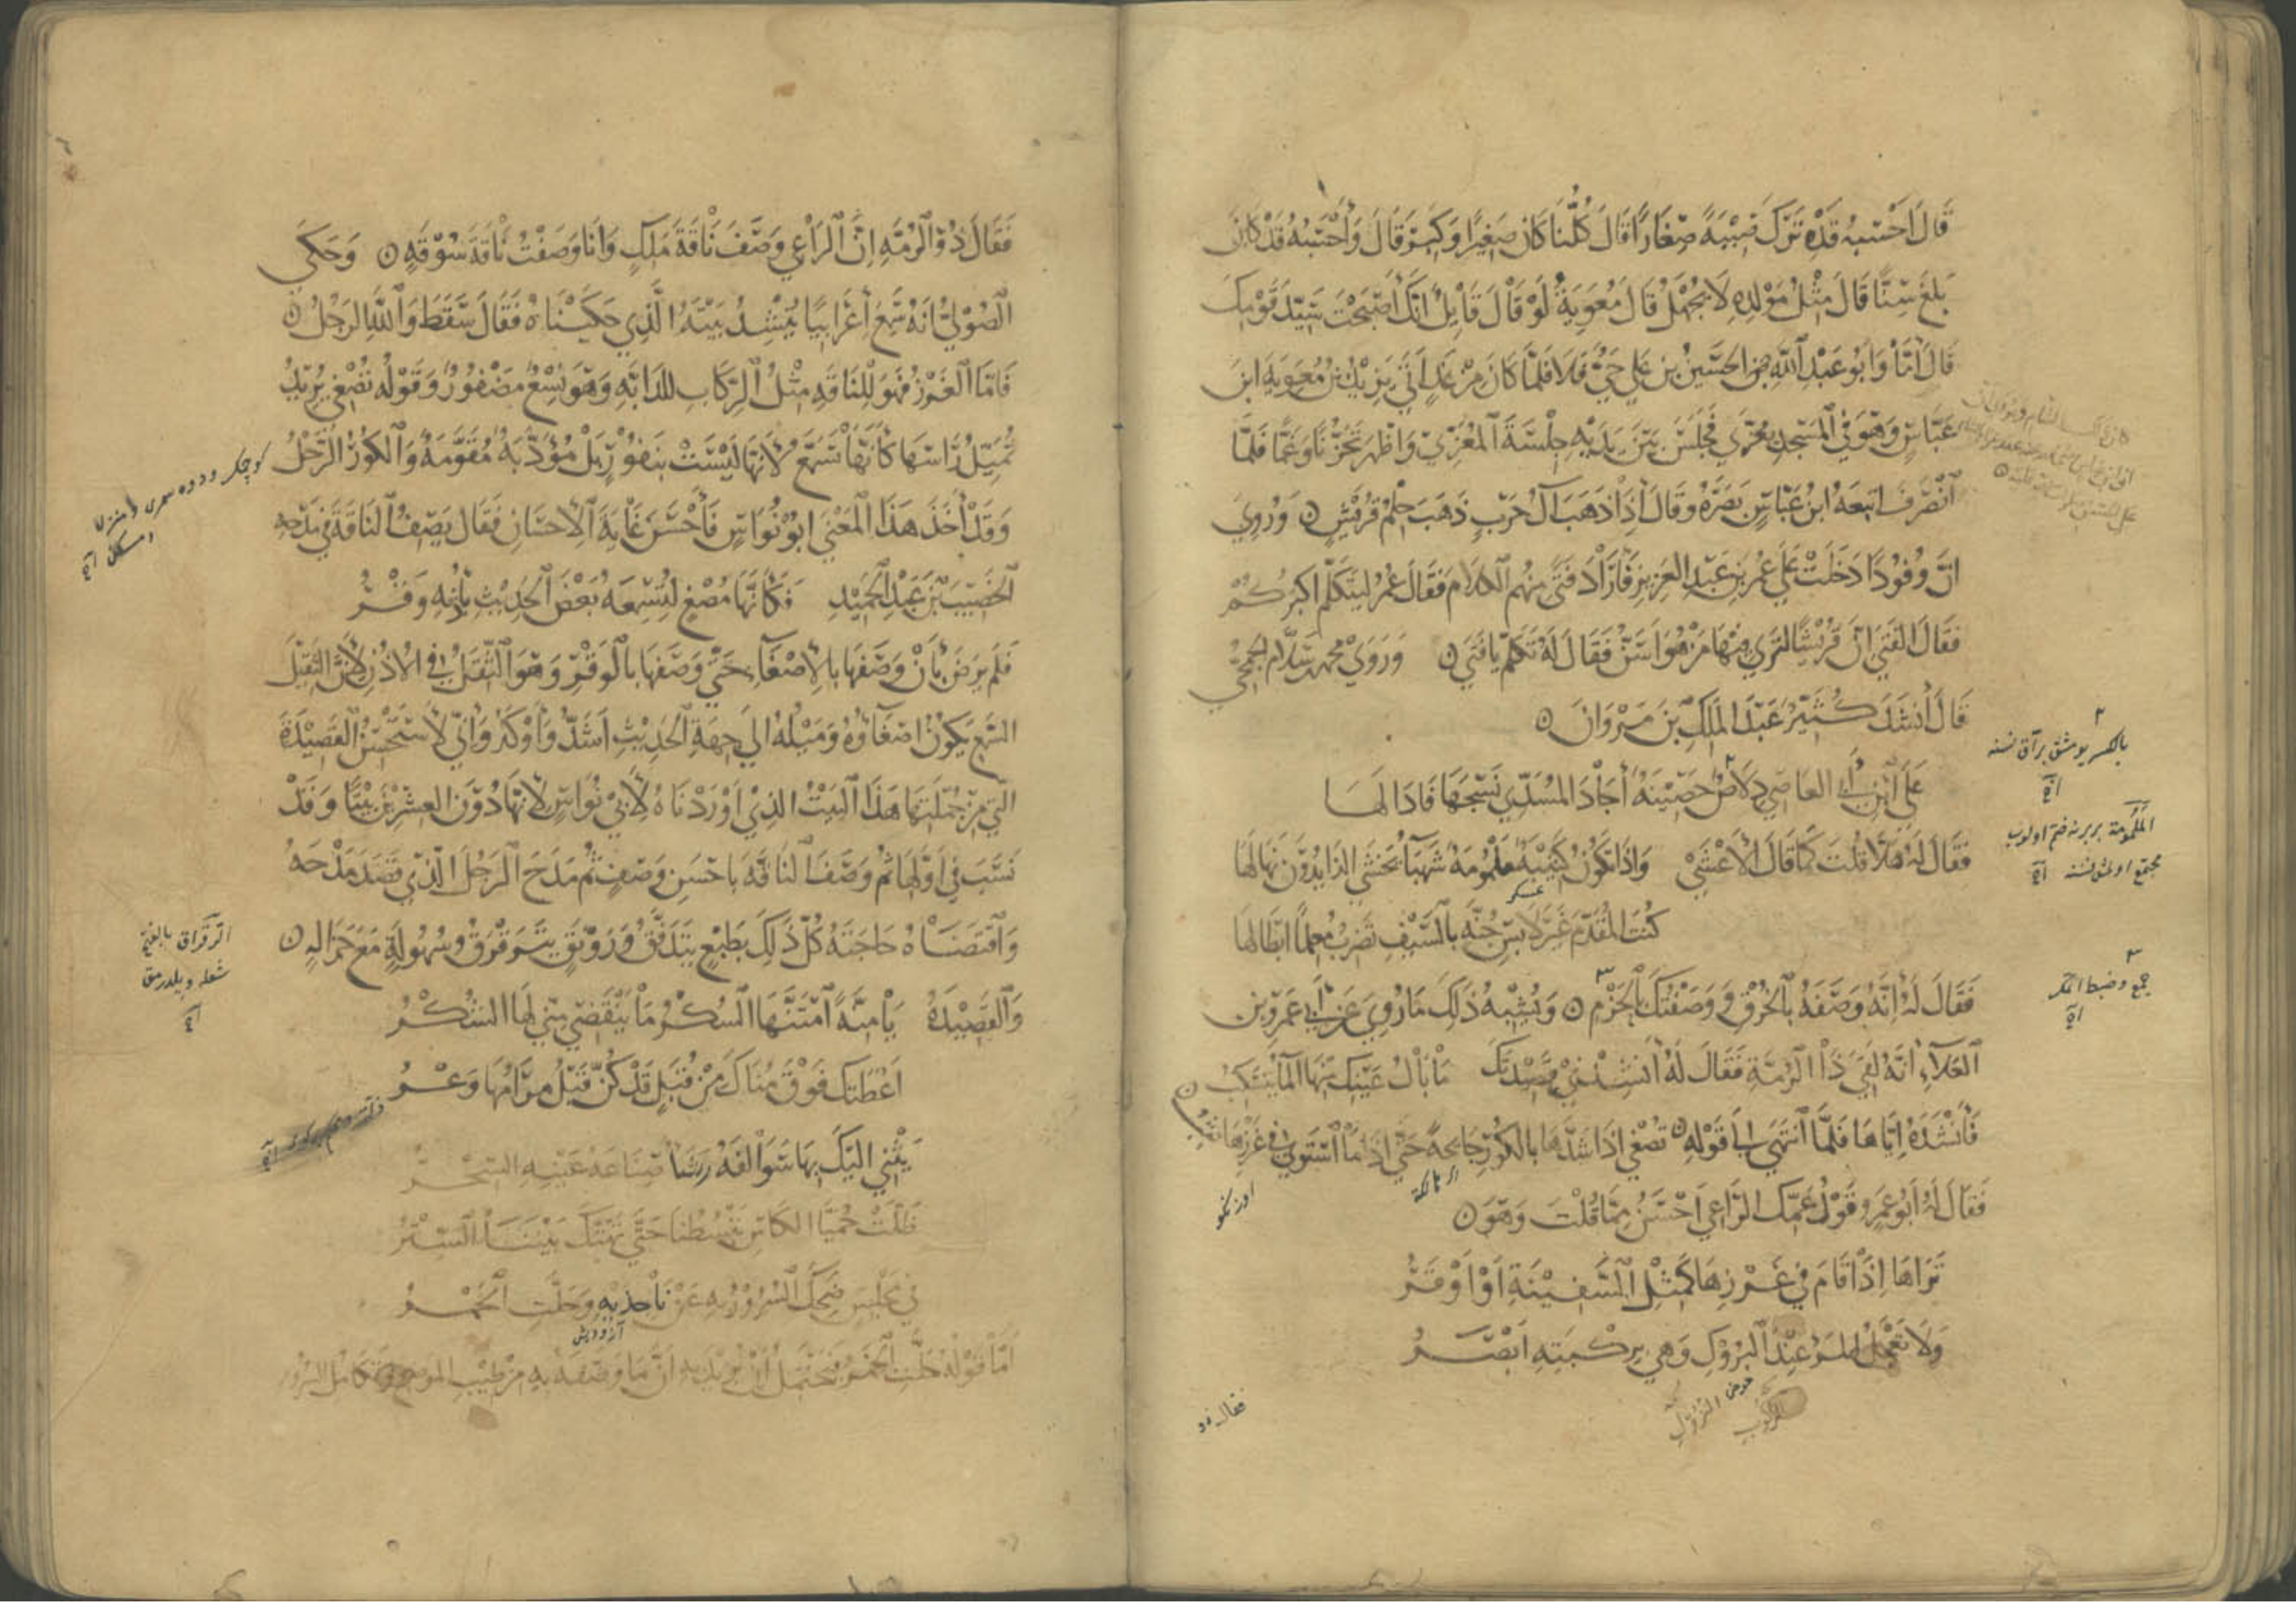 قَالَ اَحْسَبُهُ قَدْ تَرَكَ صِبْيَةً صِغَارًا قَالَ كُلُّنَا كَانَ صَغِيرًا وَكَبِرَ قَالَ وَأَحْسَبُهُ قَدْ كَانَ
بَلَغَ سِنًّا قَالَ مِثْلُ مَوْلِدِهِ لَا يُجْهَلُ قَالَ مُعٰوِيَةُ لَوْ قَالَ قَائِلٌ اِنَّكَ أَصْبَحْتَ سَيِّدَ قَوْمِكَ
قَالَ اَمَّا وَاَبُو عَبْدِ اللّٰهِ الحُسَيْنُ بن عَلِي حَيٌّ فَلَا فَلَمَّا كَانَ مِنْ غَدٍ اَتَى يَزِيْدُ بْنُ مُعٰوِيَةَ ابنَ
عَبَّاسٍ وَهُوَ فِي الْمَسْجِدِ يُعَزَّي فَجَلَسَ بَيْنَ يَدَيْهِ جِلْسَةَ الْمُعَزِّيْ وَاَظْهَرَ حُزْنًا وَغَمًّا فَلَمَّا
انْصَرَفَ اتبعَهُ ابنُ عَبَّاسٍ بَصَرَهُ وَقَالَ اِذَا ذَهَبَ آلُ حَرْبٍ ذَهَبَ حِلْمُ قُرَيْشٍ ۝ وَرُوِيَ
انَّ وُفُودًا دَخَلَتْ عَلَي عُمَرَ بن عَبْدِ العَزِيزِ فَاَرَادَ فَتًى مِنْهُم الكَلَام فَقَالَ عُمَرُ لِيَتَكَلَّم اكبَرُكُمْ
فَقَالَ الفَتَى انَّ قُرَيْشًا لتَرَي فِيْهَا مَنْ هُوَ اَسَنُّ فَقَالَ لَهُ تَكَلَّمْ يَا فَتَى ۝ وَرَوَى محمد بن سَلَّام الجُمَحِيُّ
قَالَ أَنْشَدَ كُثَيِّرٌ عَبْدَ المَلَكِ بْنَ مَرْوَانَ ۝
عَلَى ابْنِ أَبِي العَاصِي دِلَاصٌ حَصِيْنَةٌ أَجَادَ المُسَدِّي نَسْجَهَا فَاَذَالَهَا
فَقَالَ لَهُ هَلَّا قُلْتَ كَمَا قَالَ الْاَعْشَى وَاِذَا تَكُوْنُ كَتِيْبَةٌ مَلْمُوْمَةٌ شَهْبَا تَخْشَى الذَّايدُوْنَ نِهَالَهَا
عسكر
كُنْتَ المُقَدَّمَ غَيْرَ لَابِسِ جُنَّةٍ بِالسَّيْفِ تَضْرِبُ مُعْلِمًا ابْطَالَهَا
فَقَالَ لَهُ اِنَّهُ وَصَفَهُ بِالْخُرْقِ وَوَصَفْتُكَ بِالْحَزْمِ ۝ وَيُشْبِهُ ذٰلِكَ مَا رُوِيَ عَنْ اَبِي عَمْرِو بن
العَلَاءِ اَنَّهُ لَقِيَ ذَا الرُّمَّةِ فَقَالَ لَهُ اَنْشِدْنِي قَصِيْدَتَكَ مَا بَالُ عَيْنِكَ مِنْهَا الْمَاءُ يَنْسَكِبُ ۝
فَاَنْشَدَهُ اِيَّاهَا فَلَمَّا انْتَهَى اِلَى قَوْلِهِ ۝ تُصْغِي اذَا شَدَّهَا بِالكُوْرِ جَانِحَةً حَتَّى اذَا مَا اسْتَوَى فِي غَرْزِهَا تَثِبُ
اى مائلة
اوزنكو
فَقَالَ لَهُ اَبُو عَمرٍو قَوْلُ عَمِّكَ الرَّاعِي اَحْسَنُ مِمَّا قُلْتَ وَهُوَ ۝
تَرَاهَا اِذَا قَامَ فِي غَرْزِهَا كَمِثْلِ السَّفِيْنَةِ اَوْ اَوْقَرُ
وَلَا تُعْجِلُ المَرْءَ عِنْدَ الْبُرُوْكِ وَهْيَ بِرِكْبَتِهِ اَبْصَرُ
الركوب
عوض النزول
فقال ذو
بالكسر يومشق براق نسنه
اخ
الململمومة بر برينه ضم اولنوب
مجتمع اولمش نسنه اخ
جمع وضبط اتمك
اخ
فَقَالَ ذُو الرُّمَّةِ اِنَّ الرَّاعِي وَصَفَ نَاقَةَ مَلِكٍ وَاَنَا وَصَفْتُ نَاقَةَ سُوْقَةٍ ۝ وَحَكَى
الصُّوْلِيُّ اَنَّهُ سَمِعَ اَعْرَابِيًّا يُنْشِدُ بَيْتَهُ الَّذِي حَكَيْنَاهُ فَقَالَ سَقَطَ وَاللّٰهِ الرَّجُلُ ۝
فَاَمَّا الْغَرْزُ فَهُوَ لِلنَّاقَةِ مِثْلُ الرِّكَابِ لِلدَّابَّةِ وَهُوَ نِسْعٌ مَضْفُوْرٌ وَقَوْلُهُ تُصْغِي يُرِيْدُ
تُمِيْلُ رَاسَهَا كَاَنَّهَا تَسْمَعُ لِاَنَّهَا لَيْسَتْ بِنَفُوْرٍ بَلْ مُؤَدَّبَةٌ مُقَوَّمَةٌ وَالْكُوْرُ الرَّحْلُ
وَقَدْ أَخَذَ هَذَا الْمَعْنَى اَبُوْ نُوَاسٍ فَاَحْسَنَ غَايَةَ الْاِحْسَانِ فَقَالَ يَصِفُ النَاقَةَ فِي مَدْحِهِ
الْخَصِيْبَ بْنَ عَبْدِ الْحَمِيْدِ فَكَاَنَّهَا مُصْغٍ لِتُسْمِعَهُ بَعْضَ الْحَدِيْثِ بِاُذْنِهِ وَقْرُ
فَلَمْ يَرْضَ بِاَنْ وَصَفَهَا بِالْاِصْغَاءِ حَتَّى وَصَفَهَا بِالْوَقْرِ وَهُوَ الثِّقَلُ فِي الْاُذُنِ لِاَنَّ الثَّقِيْلَ
السَّمْعِ يَكُوْنُ اصْغَاؤُهُ وَمَيْلُهُ اِلَى جِهَةِ الْحَدِيْثِ اَشَدَّ وَاَوْكَدَ وَاِنِّي لَاَسْتَحْسِنُ الْقَصِيْدَةَ
الَّتِي مِنْ جُمْلَتِهَا هَذَا الْبَيْتُ الَّذِي اَوْرَدْنَاهُ لِاَبِي نُوَاسٍ لِاَنَّهَا دُوْنَ الْعِشْرِيْنَ بَيْتًا وَقَدْ
نَسَبَ فِي اَوَّلِهَا ثُمَّ وَصَفَ النَاقَةَ بِاحْسَنِ وَصْفٍ ثُمَّ مَدَحَ الرَّجُلَ الَّذِي قَصَدَ مَدْحَهُ
وَاقْتَضَاهُ حَاجَتَهُ كُلَّ ذَلِكَ بِطَبْعٍ يَتَدَفَّقُ وَرَوْنَقٍ يَتَرَقْرَقُ وَسُهُوْلَةٍ مَعَ جَزَالَةٍ ۝
وَالْقَصِيْدَةُ يَا مِنَّةً امْتَنَّهَا السُّكْرُ مَا يَنْقَضِي مِنِّي لَهَا الشُّكْرُ
اَعْطَتْكَ فَوْقَ مُنَاكَ مِنْ قُبَلٍ قَدْ كُنَّ قَبْلُ مَرَامُهَا وَعْرُ
يَثْنِي اِلَيْكَ بِهَا سَوَالِفَهُ رَشَأٌ صِنَاعَةُ عَيْنِهِ السِّحْرُ
ظَلَّتْ حُمَيَّا الْكَاسِ تَبْسُطُنَا حَتَّى تَهَتَّكَ بَيْنَنَا السِّتْرُ
فِي مَجْلِسٍ ضَحِكَ السُّرُوْرُ بِهِ عَنْ نَاجِذَيْهِ وَحَلَّتِ الْخَمْرُ
اَمَّا قَوْلُهُ حَلَّتِ الْخَمْرُ فَيَحْتَمِلُ اَنْ يُرِيْدَ بِهِ اَنَّ مَا وَصَفَهُ بِهِ مِنْ طِيْبِ الموضع وَتَكَامُلِ السُّرُوْرِ
الترقراق بالفتح
شعله ويلدرمق
اخ